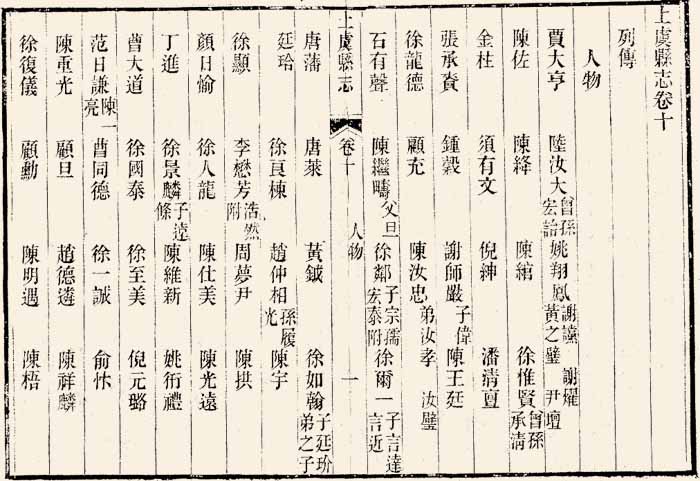 上虞縣志卷十
列傳
人物
賈大亨 陸汝大曾孫宏詒 姚翔鳳謝讜黃之璧 謝燿尹壇
陳佐 陳絳 陳綰 徐惟賢曾孫承清
金柱 須有文 倪紳 潘清亶
張承賚 鍾穀 謝師嚴子偉 陳王廷
徐龍德 顧充 陳汝忠弟汝孝 汝璧
石有聲 陳繼疇父旦 徐鄰子宗孺宏泰附 徐爾一子言達言近
上虞縣志 卷十 人物 一
唐藩 唐萊 黃鉞 徐如翰子廷玠弟之子
廷玲 徐良棟 趙仲相孫履光 陳宇
徐顯 李懋芳浩然附 周夢尹 陳拱
顏日愉 徐人龍 陳仕美 陳光遠
丁進 徐景麟子遠條 陳維新 姚衍禮
曹大道 徐國泰 徐至美 倪元璐
范日謙陳一亮 曹同德 徐一誠 俞㤓
陳重光 顧旦 趙德遴 陳祥麟
徐復儀 顧勳 陳明遇 陳梧